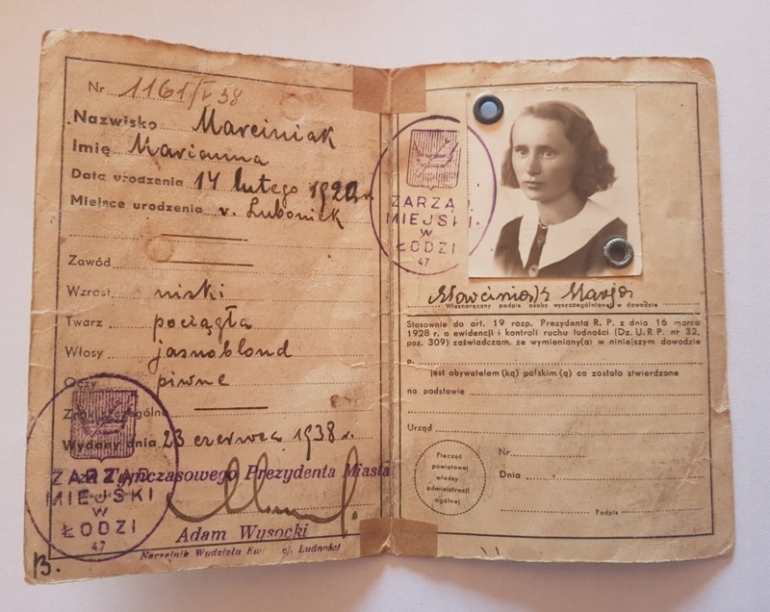 Nr. 1161/V 38
Nazwisko Marciniak
Imię Marianna
Data urodzenia 14 lutego 1920 r.
Miejsce urodzenia v. Luboniek
Zawód
Wzrost niski
Twarz pociągła
Włosy jasnoblond
Oczy piwne
Znaki szczególne
Wydany dnia 23 czerwca 1938 r.
Tymczasowego Prezydenta Miasta
ZARZĄD
MIEJSKI
W
ŁODZI
47
Adam Wysocki
Naczelnik Wydziału
B.
ZARZĄD
MIEJSKI
W
ŁODZI
47
Marciniak Marja
Własnoręczny podpis osoby wyszczególnionej w dowodzie
Stosownie do art. 19 rozp. Prezydenta R. P. z dnia 16 marca
1928 r. o ewidencji i kontroli ruchu ludności (Dz. U. R. P. nr 32,
poz. 309) zaświadczam, że wymieniony(a) w niniejszym dowodzie
p.
jest obywatelem (ką) polskim (ą) co zostało stwierdzone
na podstawie
Urząd
Pieczęć
powiatowej
władzy
administracji
ogólnej
Nr
Dnia
Podpis